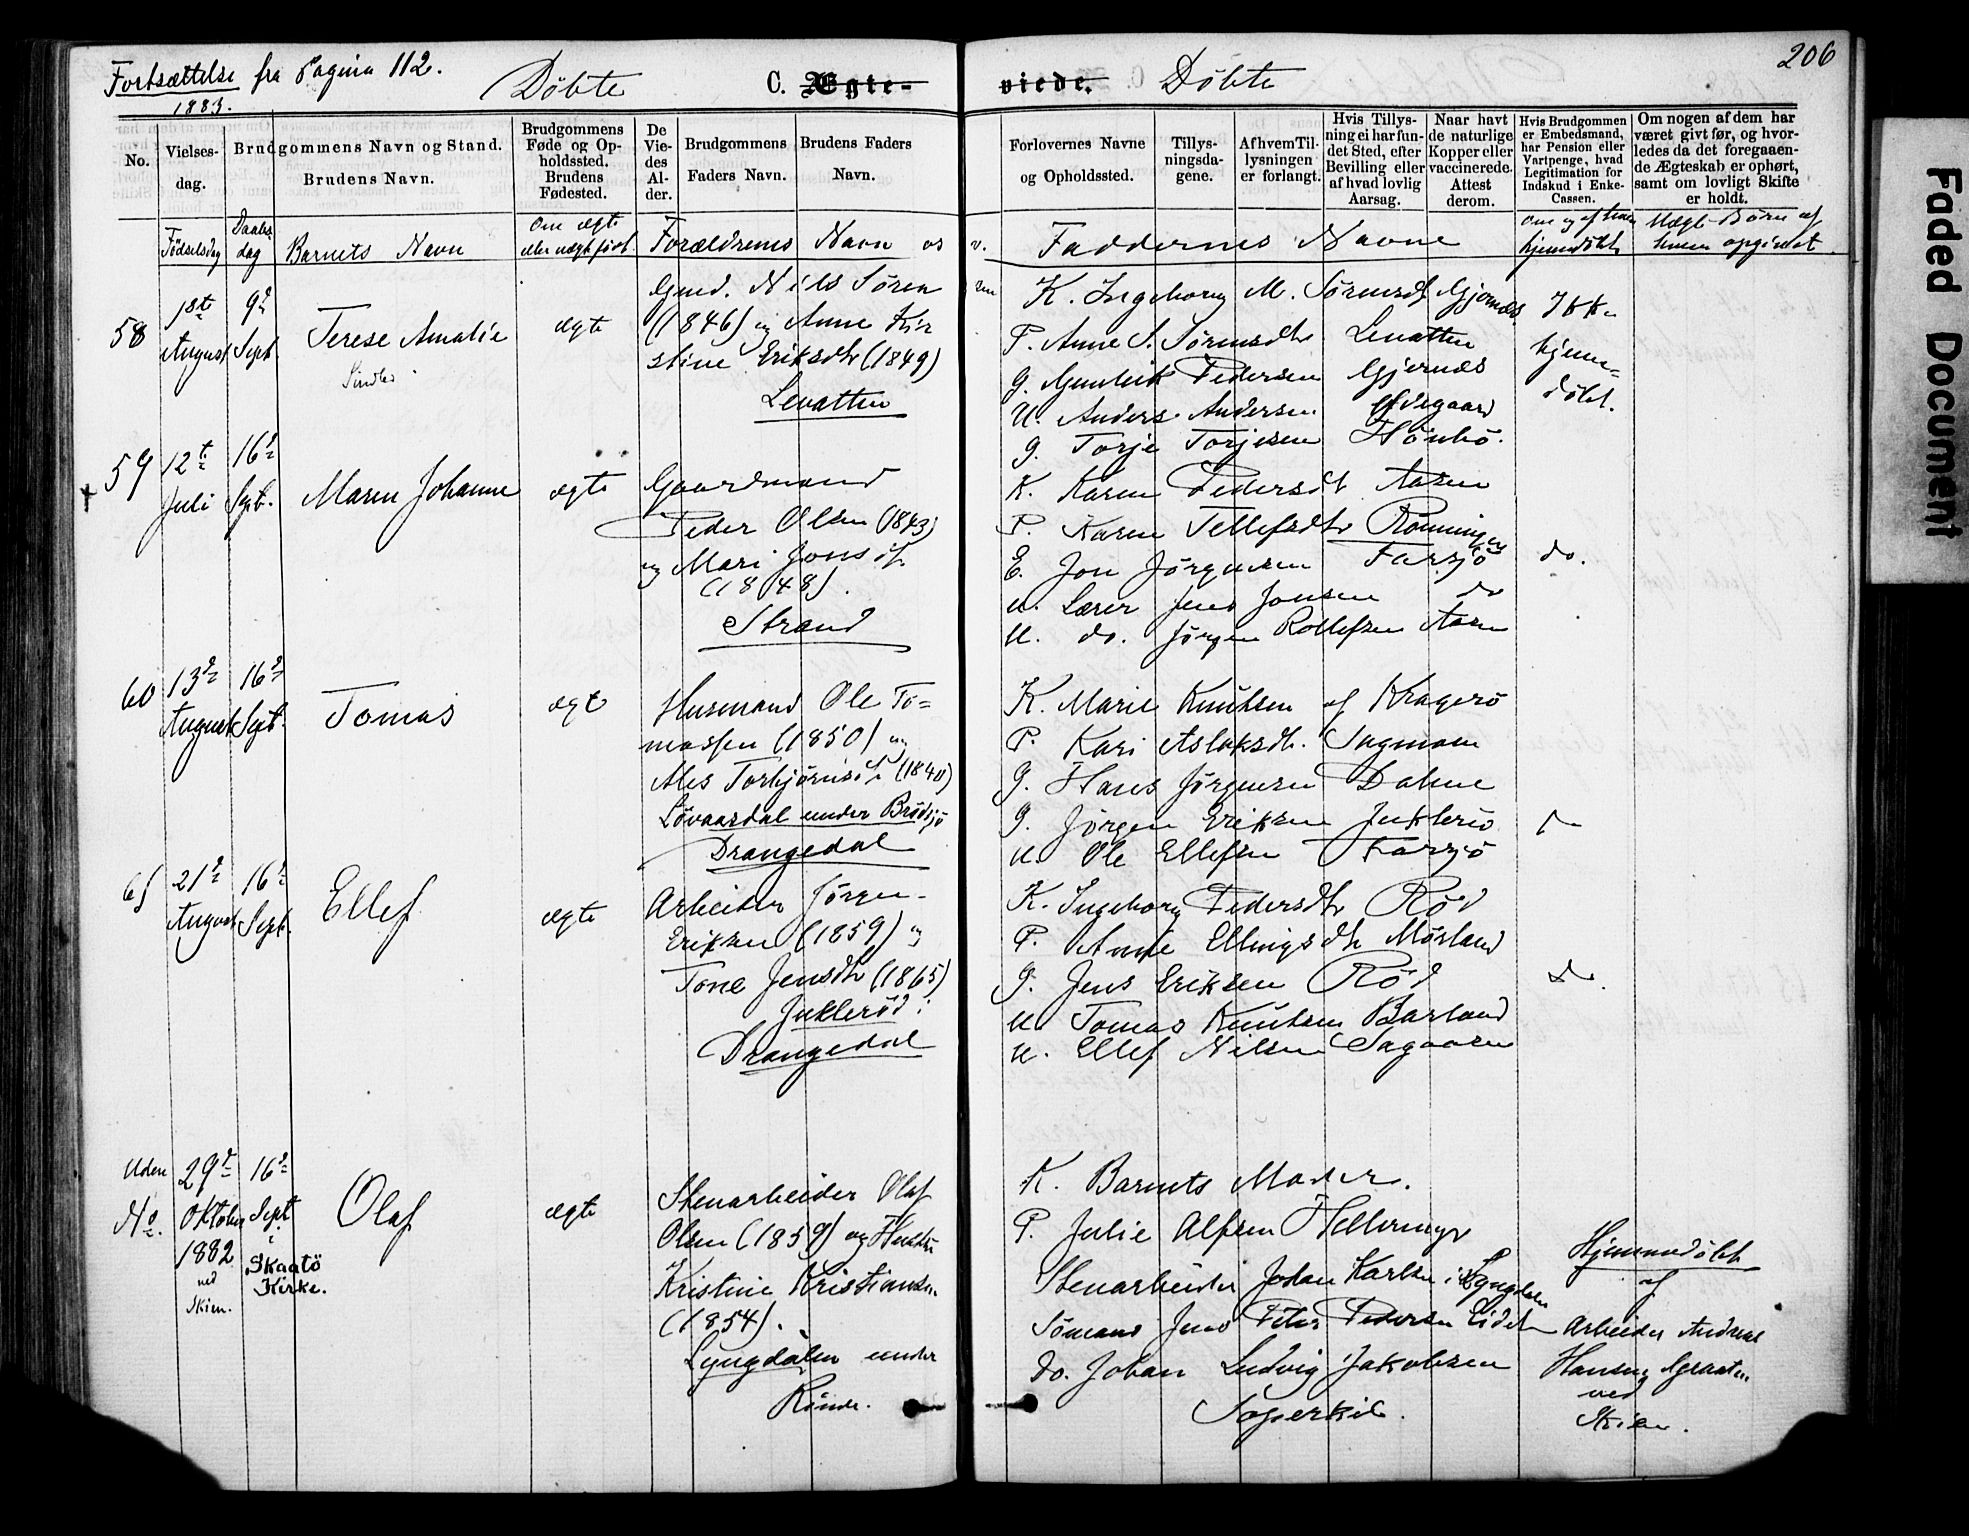 206
Fortsættelse fra Pagina 112.
1883.
Döbte C. Ægte- viede. Döbte
No.
Vielses-
dag.
Brudgommens Navn og Stand.
Brudens Navn.
Brudgommens
Føde og Op-
holdssted.
Brudens
Fødested.
De
Vie-
des
Al-
der.
Brudgommens
Faders Navn.
Brudens Faders
Navn.
Forlovernes Navne
og Opholdssted.
Tillys-
ningsda-
gene.
Af hvem Til-
lysningen
er forlangt.
Hvis Tillys-
ning ei har fun-
det Sted, efter
Bevilling eller
af hvad lovlig
Aarsag.
Naar havt
de naturlige
Kopper eller
vaccinerede.
Attest
derom.
Hvis Brudgommen
er Embedsmand,
har Pension eller
Vartpenge, hvad
Legitimation for
Indskud i Enke-
Cassen.
Om nogen af dem har
været givt før, og hvor-
ledes da det foregaaen-
de Ægteskab er ophørt,
samt om lovligt Skifte
er holdt.
Födselsdag
Daabs
dag
Barnets Navn
Om ægte
eller uægte født.
Forældrenes Navn os v.
Faddernes Navne
Om og af hvem
hjemmedöbt
Uægt. Börn af
hvem opgivet
58
18te
August
9de
Sept
Terese Amalie
ægte
Gmd. Nils Sören sen
(1846) og Anne Kir
stine Eriksdtr (1849)
Levatten
K. Ingeborg M. Sörensdt Gjernæs
P. Anne S. Sörensdtr Levatten
G. Pedersen Gjernæs
U. Anders Andersen Ødegaard
G. Torje Torjesen
Ikke
hjemme-
döbt.
59
12te
Juli
16de
Sept.
Maren Johanne
ægte
Gaardmand
Peder Olsen (1843)
og Mari Jonsdt
(1848).
Strand
K. Karen Pedersdt Aasen
P. Karen Tellefsdtr Rönningen
E. Jon Jörgensen Farsjö
U. Lærer Jens Jonsen do
U. do. Jörgen Rollefsen Aasen
do.
60
13de
August
16de
Sept.
Tomas
ægte
Husmand Ole To=
massen (1850) og
Torbjörnsdt (1840)
Lövaasdal under Brödsjö
Drangedal
K. Marie Knutsen af Kragerö
P. Kari Aslaksdtr. Sagmoen
G. Hans Jörgensen Dahme
G. Jörgen Eriksen Jukleröd
U. Ole Ellefsen Farsjö
61
21de
August
16de
Sept.
Ellef
ægte
Arbeider Jörgen
Eriksen (1859) og
Tone Jensdtr (1865)
Jukleröd i
Drangedal
K. Ingeborg Pedersdtr Röd
P. Anne Ellingsdtr Mörland
G. Jens Eriksen Röd
U. Tomas Knutsen Barland
U. Ellef Nilsen Sagaasen
do.
Uden
No.
29de
Oktober
1882
ved
Skien.
16de
Sept
i
Skaatö
Kirke.
Olaf
ægte
Stenarbeider Olaf
Olsen (1859) og Hustru
Kristine Kristiansen
(1854).
Lyngdalen under
Rönde.
K. Barnets Moder.
P. Julie Alfsen Hellermyr
Stenarbeider Johan Karlsen i Lyngdalen
Sömand Jens Peter Pedersen Eidet
do. Johan Ludvig Jakobsen
Soperkil.
Hjemmedöbt
af
Arbeider Andreas
Hansen Graaten
ved
Skien.
Faded Document